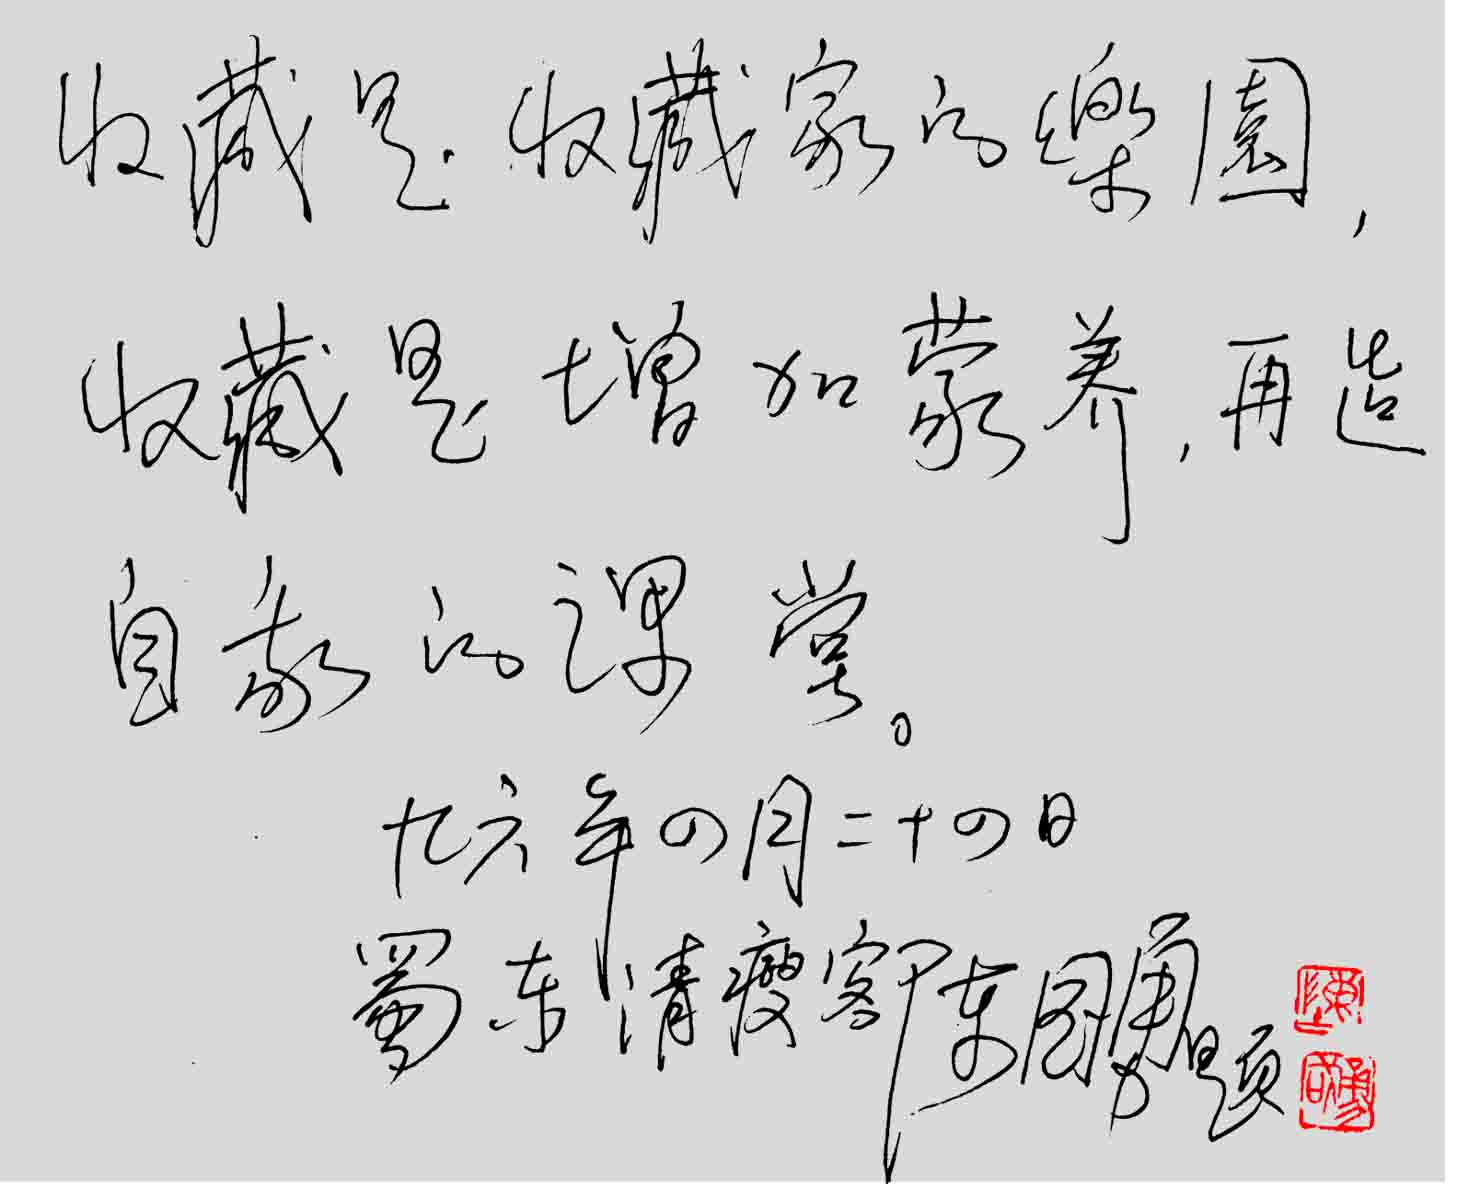 收藏是收藏家的樂園，
收藏是增加蒙养，再造
自我的课堂。
九六年四月二十四日
蜀东清瘦客陈国勇题
陳
國勇